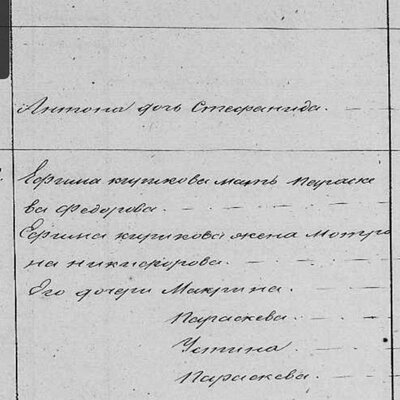 Антона дочь Стефанида.
Ефима куликова мать Параске
ва Федорова.
Ефима куликова жена Мотро
на никифорова.
Его дочери Макрина.
Параскева.
Устина
Параскева.